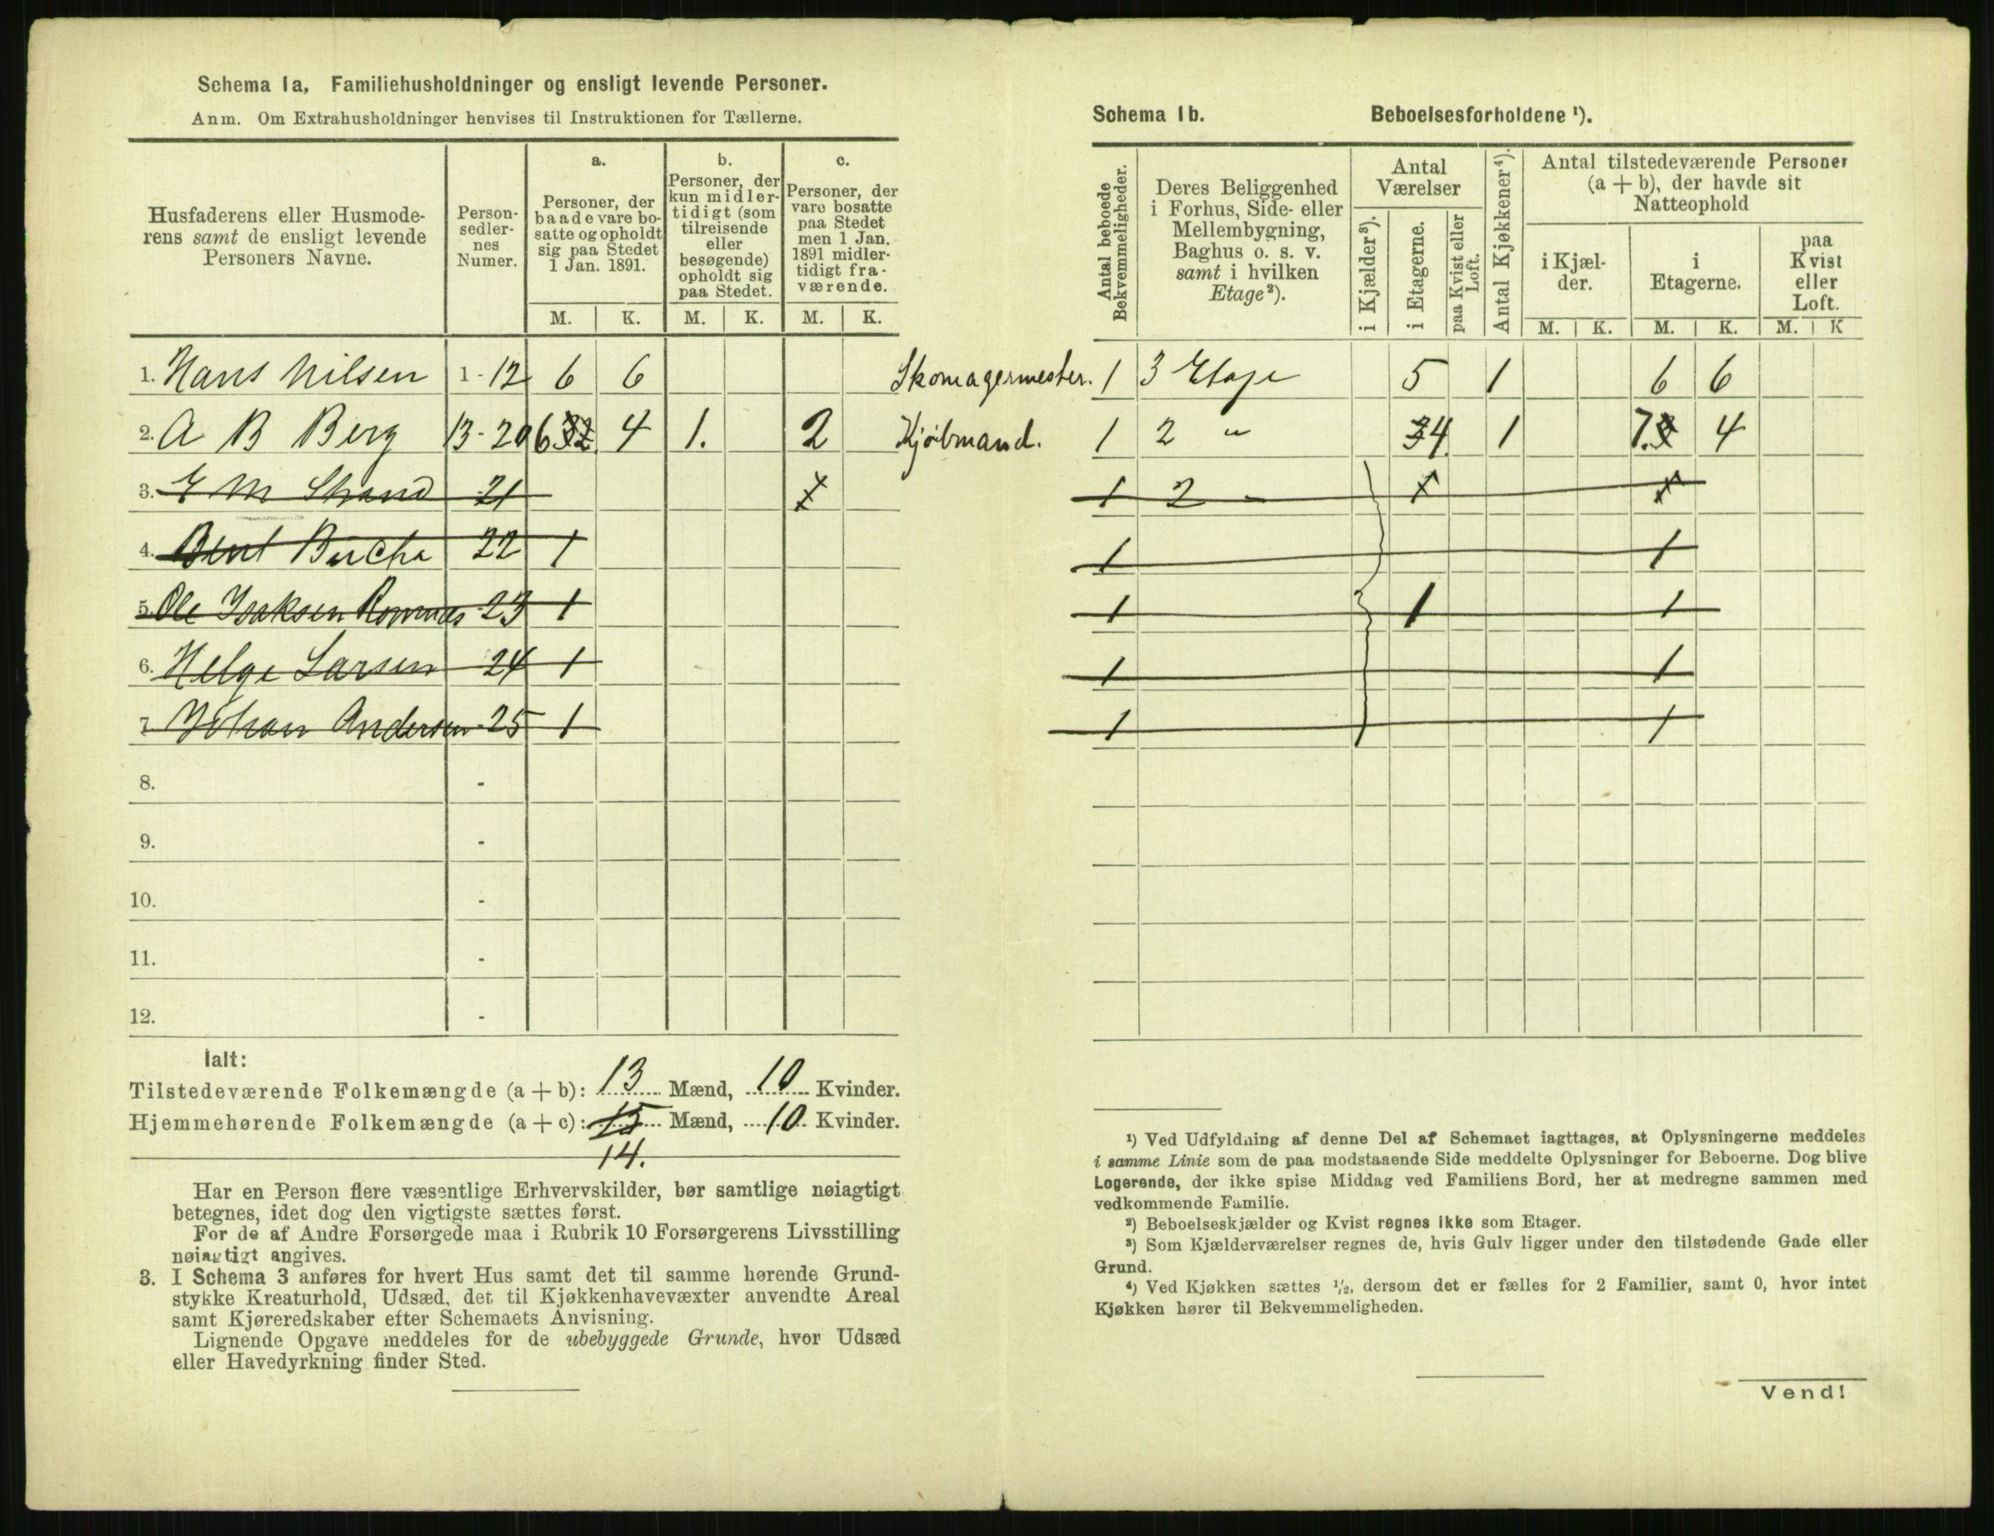 Schema 1a, Familiehusholdninger og ensligt levende Personer.
Anm. Om Extrahusholdninger henvises til Instruktionen for Tællerne.
Husfaderens eller Husmode-
rens samt de ensligt levende
Personers Navne.
Person-
sedler-
nes
Numer.
a.
Personer, der
baade vare bo-
satte og opholdt
sig paa Stedet
1 Jan. 1891.
b.
Personer, der
kun midler-
tidigt (som
tilreisende
eller
besøgende)
opholdt sig
paa Stedet.
c.
Personer, der
vare bosatte
paa Stedet
men 1 Jan.
1891 midler-
tidigt fra-
værende.
M. K. M. K. M. K.
1. Hans Nilsen 1-12 6 6 Skomagermester.
2. A B Berg 13-20 6 4 1. 2 Kjöbmand.
3. E M Strand 21
4. Bent Bucha 22 1
5. Ole Isaksen 23 1
6. Helge Larsen 24 1
7. Johan Andersen 25 1
8. -
9. -
10. -
11. -
12. -
Ialt:
Tilstedeværende Folkemængde (a + b): 13 Mænd, 10 Kvinder.
Hjemmehørende Folkemængde (a + c): 15 Mænd, 10 Kvinder.
14.
Har en Person flere væsentlige Erhvervskilder, bør samtlige nøiagtigt
betegnes, idet dog den vigtigste sættes først.
For de af Andre Forsørgede maa i Rubrik 10 Forsørgerens Livsstilling
nøiagtigt angives.
3. I Schema 3 anføres for hvert Hus samt det til samme hørende Grund-
stykke Kreaturhold, Udsæd, det til Kjøkkenhavevæxter anvendte Areal
samt Kjøreredskaber efter Schemaets Anvisning.
Lignende Opgave meddeles for de ubebyggede Grunde, hvor Udsæd
eller Havedyrkning finder Sted.
Schema 1b. Beboelsesforholdene ¹).
Antal beboede
Bekvemmeligheder.
Deres Beliggenhed
i Forhus, Side- eller
Mellembygning,
Baghus o. s. v.
samt i hvilken
Etage²).
Antal
Værelser
i Kjælder³).
i Etagerne.
paa Kvist eller
Loft.
Antal Kjøkkener⁴).
Antal tilstedeværende Personer
(a + b), der havde sit
Natteophold
i Kjæl-
der.
i
Etagerne.
paa
Kvist
eller
Loft.
M. K. M. K. M. K
1 3 Etage 5 1 6 6
1 2 " 34 1 7. 4
1 2 -
1 1
1 1 1
1 1
1 1
¹) Ved Udfyldning af denne Del af Schemaet iagttages, at Oplysningerne meddeles
i samme Linie som de paa modstaaende Side meddelte Oplysninger for Beboerne. Dog blive
Logerende, der ikke spise Middag ved Familiens Bord, her at medregne sammen med
vedkommende Familie.
²) Beboelseskjælder og Kvist regnes ikke som Etager.
³) Som Kjælderværelser regnes de, hvis Gulv ligger under den tilstødende Gade eller
Grund.
⁴) Ved Kjøkken sættes ¹/₂, dersom det er fælles for 2 Familier, samt 0, hvor intet
Kjøkken hører til Bekvemmeligheden.
Vend!